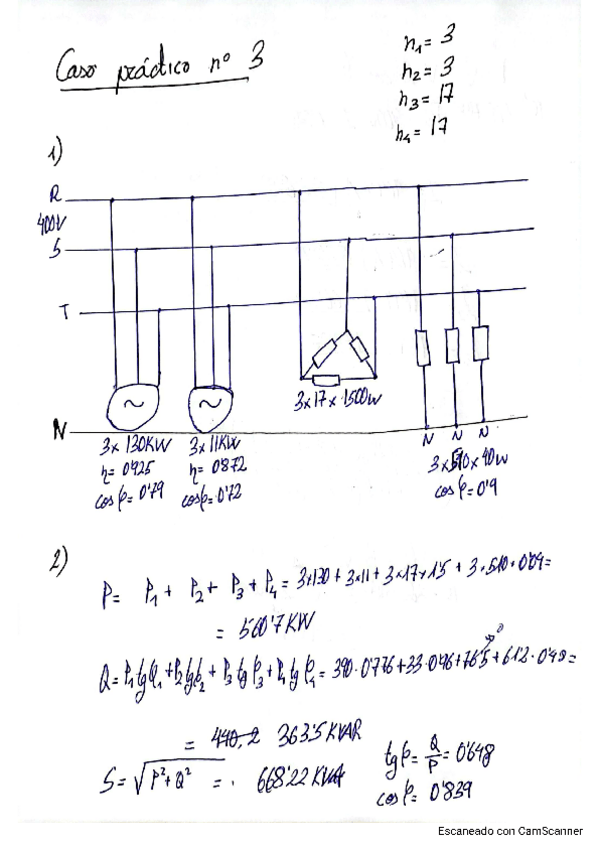 Caso práctico nº 3
n₁ = 3
n₂ = 3
n₃ = 17
n₄ = 17
1)
R
400V
S
T
N
3x130KW
η = 0'925
cosφ = 0'79
3x11KW
η = 0'872
cosφ = 0'72
3x17x1500w
N N N
3x510x40w
cosφ = 0'9
2)
P = P₁ + P₂ + P₃ + P₄ = 3x130 + 3x11 + 3x17x1'5 + 3·510·0'04 =
= 560'7 KW
Q = P₁tgφ₁ + P₂tgφ₂ + P₃tgφ₃ + P₄tgφ₄ = 390·0'776 + 33·0'96 + 76'5 + 61'2·0'48 =
0
= 440,2 363'5 KVAR
S = √P²+Q² = 668'22 KVA
tgφ = Q/P = 0'648
cosφ = 0'839
Escaneado con CamScanner